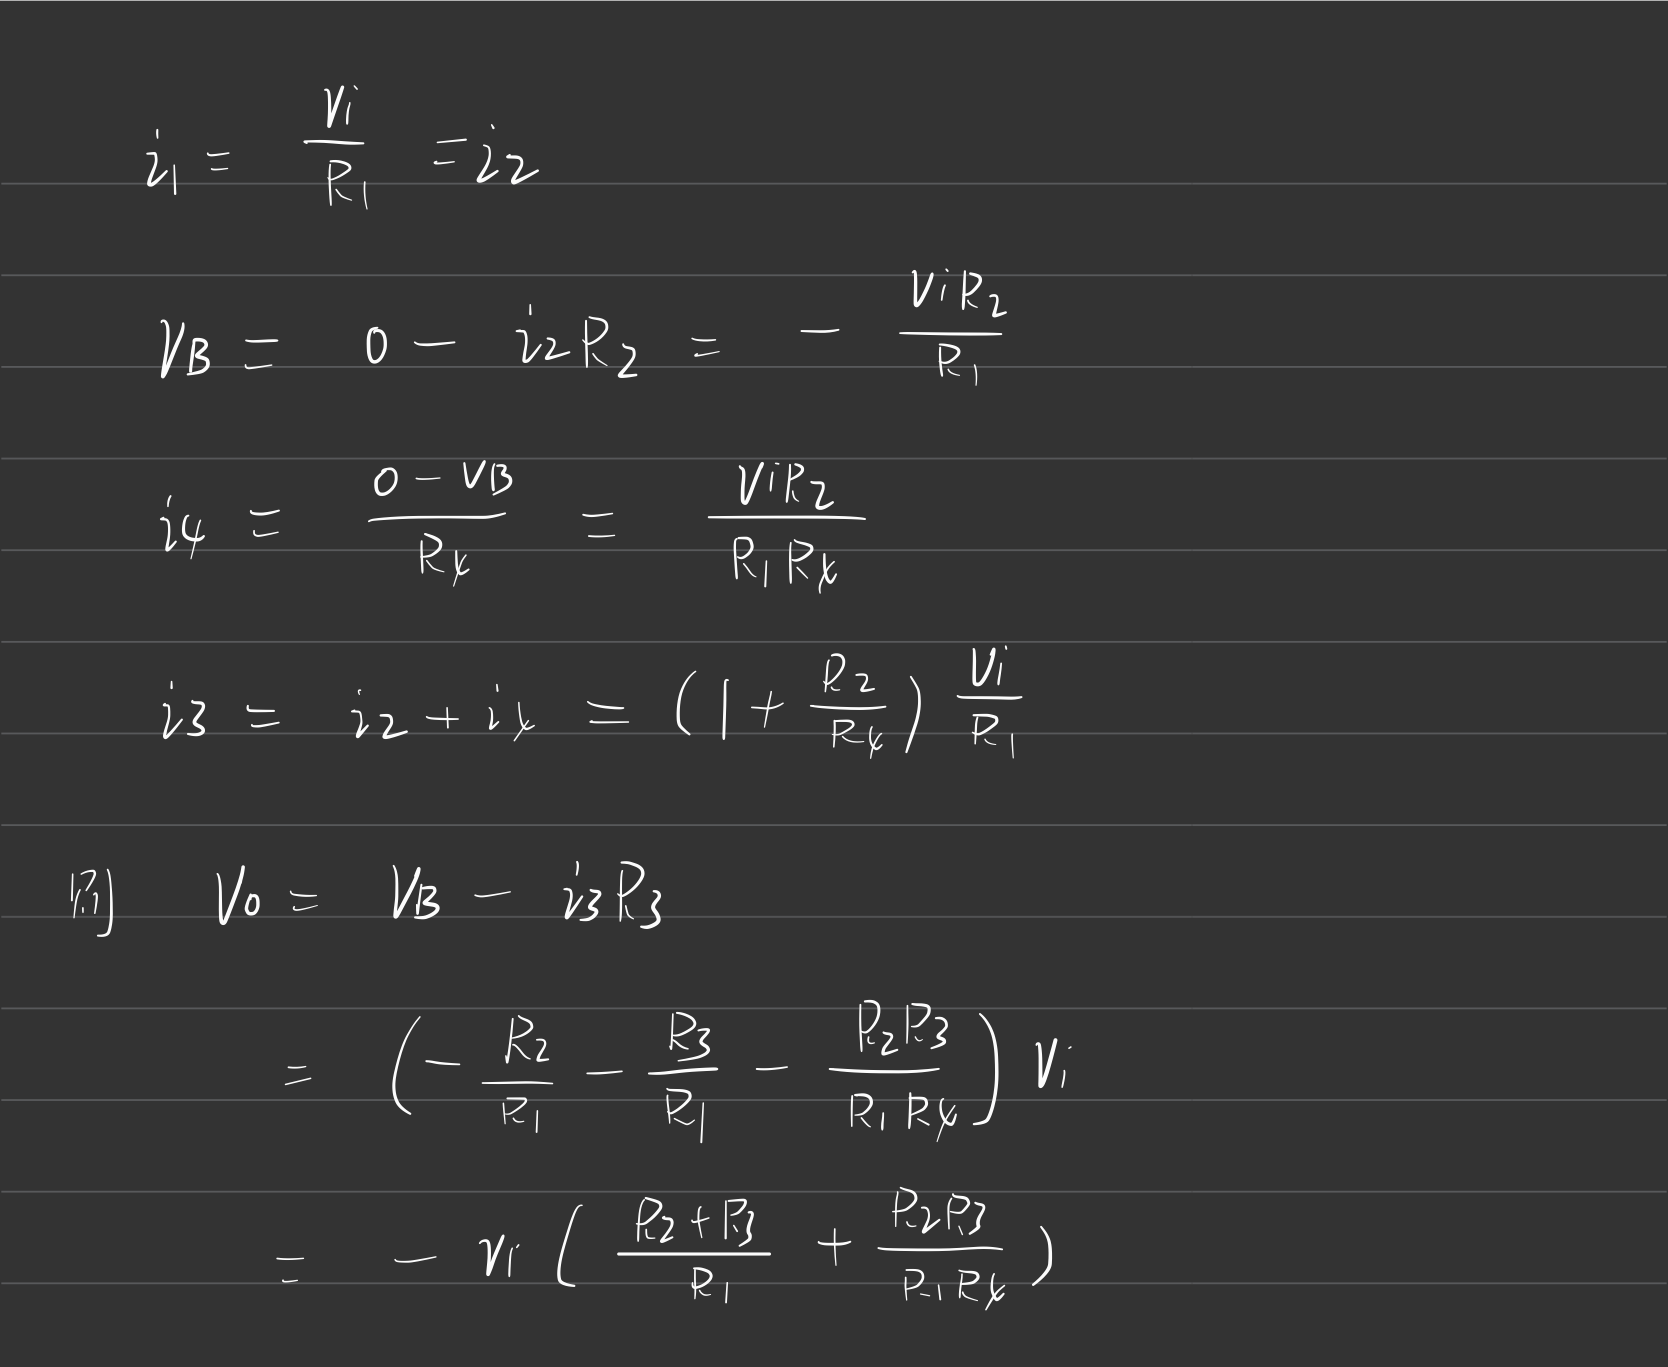 i1 = Vi/R1 = i2
VB = 0 - i2R2 = - ViR2/R1
i4 = (0 - VB)/R4 = ViR2/(R1R4)
i3 = i2 + i4 = (1 + R2/R4) Vi/R1
则 Vo = VB - i3R3
= (- R2/R1 - R3/R1 - R2R3/(R1R4)) Vi
= - Vi ((R2+R3)/R1 + R2R3/(R1R4))